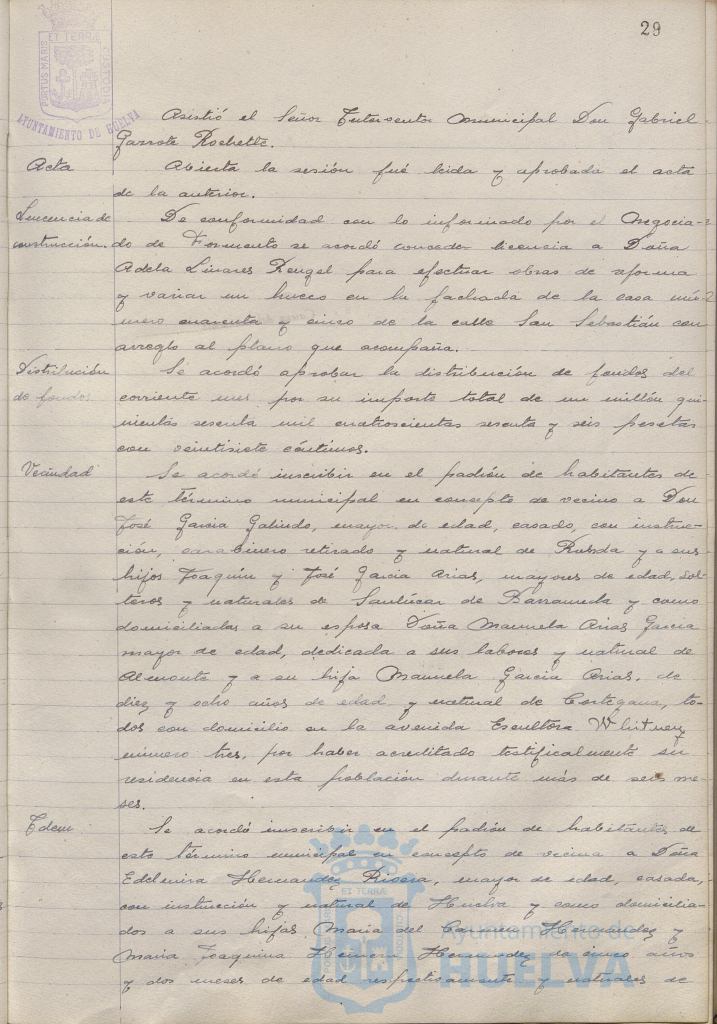 29
PORTUS MARIS ET TERRÆ CUSTODIA
AYUNTAMIENTO DE HUELVA
Asistió el Señor Interventor municipal Don Gabriel
Garrote Rochette.
Acta
Abierta la sesión fué leida y aprobada el acta
de la anterior.
Lincencia de
construcción.
De conformidad con lo informado por el Negocia-
do de Fomento se acordó conceder licencia a Doña
Adela Linares Rengel para efectuar obras de reforma
y variar un hueco en la fachada de la casa nú-
mero cuarenta y cinco de la calle San Sebastián con
arreglo al plano que acompaña.
Distribución
de fondos
Se acordó aprobar la distribución de fondos del
corriente mes por su importe total de un millón qui-
nientas sesenta mil cuatroscientas sesenta y seis pesetas
con veintisiete céntimos.
Vecindad
Se acordó inscribir en el padrón de habitantes de
este término municipal en concepto de vecino a Don
José Garcia Galindo, mayor de edad, casado, con instruc-
ción, carabinero retirado y natural de y a sus
hijos Joaquín y José Garcia Arias, mayores de edad, sol-
teros y naturales de Sanlúcar de Barrameda y como
domiciliadas a su esposa Doña Manuela Arias Garcia
mayor de edad, dedicada a sus labores y natural de
Almonte y a su hija Manuela Garcia Arias, de
diez y ocho años de edad y natural de Cortegana, to-
dos con domicilio en la avenida Escultora Whitney
número tres, por haber acreditado testificalmente su
residencia en esta población durante más de seis me-
ses.
Idem
Se acordó inscribir en el padrón de habitantes de
este término municipal en concepto de vecina a Doña
Edelmira Hernandez Rivera, mayor de edad, casada,
con instrucción y natural de Huelva y como domicilia-
dos a sus hijas Maria del Carmen Hernandez y
Maria Joaquina Hernandez de cinco años
y dos meses de edad respectivamente y naturales de
Ayuntamiento de
HUELVA